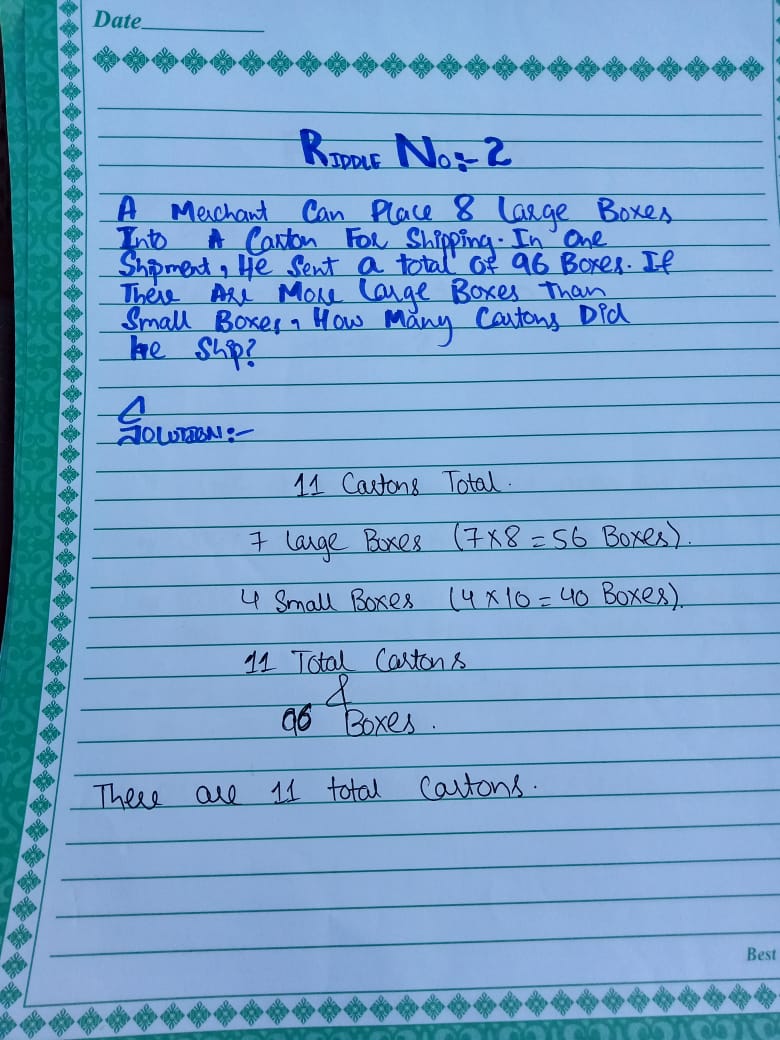 Date
RIDDLE No:- 2
A Merchant Can Place 8 Large Boxes
Into A Carton For Shipping. In One
Shipment, He Sent a total of 96 Boxes. If
There Are More Large Boxes Than
Small Boxes, How Many Cartons Did
He Ship?
SOLUTION:-
11 Cartons Total.
7 Large Boxes (7x8=56 Boxes).
4 Small Boxes (4x10=40 Boxes).
11 Total Cartons
&
96 Boxes.
There are 11 total Cartons.
Best